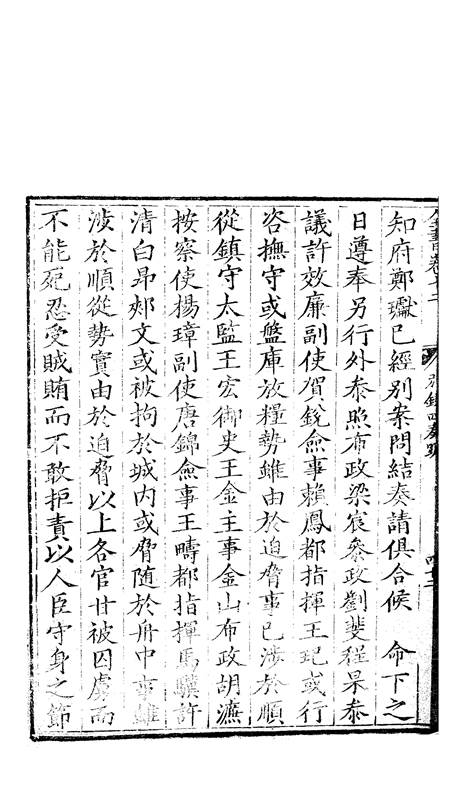 全書卷十二 別錄四奏疏
知府鄭瓛已經別案問結奏請俱合候　命下之
日遵奉另行外叅照布政梁宸叅政劉斐程杲叅
議許效廉副使賀銳僉事賴鳳都指揮王玘或行
咨撫守或盤庫放糧勢雖由於迫脅事已涉於順
從鎮守太監王宏御史王金主事金山布政胡濂
按察使楊璋副使唐錦僉事王疇都指揮馬驥許
清白昂郟文或被拘於城內或脅隨於舟中事雖
涉於順從勢實由於迫脅以上各官甘被囚虜而
不能死忍受賊賄而不敢拒責以人臣守身之節